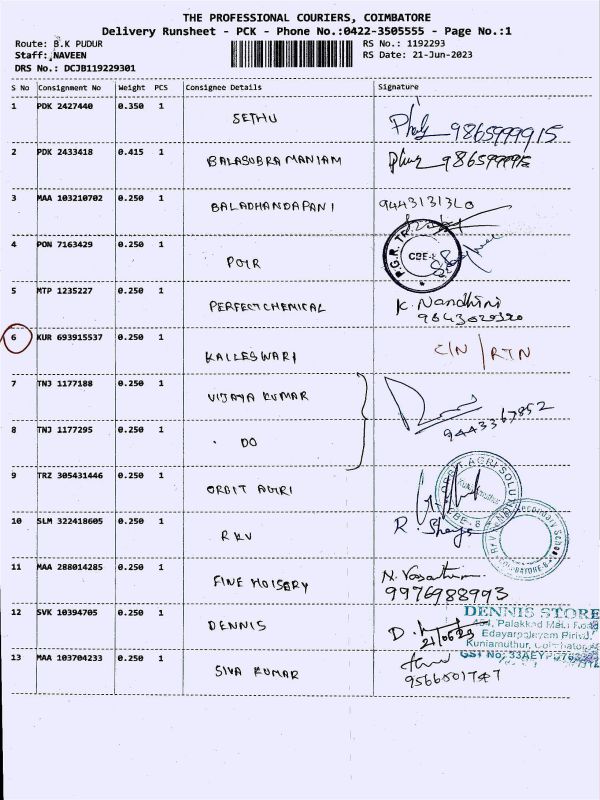 THE PROFESSIONAL COURIERS, COIMBATORE
Delivery Runsheet - PCK - Phone No.:0422-3505555 - Page No.:1
Route: B.K PUDUR RS No.: 1192293
Staff: NAVEEN RS Date: 21-Jun-2023
DRS No.: DCJB119229301
S No Consignment No Weight PCS Consignee Details Signature
1 PDK 2427440 0.350 1 SETHU 9865999915
2 PDK 2433418 0.415 1 BALASUBRAMANIAM 9865999915
3 MAA 103210702 0.250 1 BALADHANDAPANI 9443131310
4 PON 7163429 0.250 1 PGTR P.G.R. TR CBE-8
5 MTP 1235227 0.250 1 PERFECT CHEMICAL K. Nandhini
9643020320
6 KUR 693915537 0.250 1 KALLESWARI C/N / RTN
7 TNJ 1177188 0.250 1 VIJAYA KUMAR
8 TNJ 1177295 0.250 1 DO 9443367852
9 TRZ 305431446 0.250 1 ORBIT AGRI AGRI SOLU
10 SLM 322418605 0.250 1 RKV R.
Secondary School
COIMBATORE-8
11 MAA 288014285 0.250 1 FINE HOISERY N.
9976988993
12 SVK 10394705 0.250 1 DENNIS D. 21/06/23
DENNIS STORE
Palakkad Main Road
Edayarpalayam Pirivu,
Kuniamuthur, Coimbatore
GST No: 33AEYP
13 MAA 103704233 0.250 1 SIVA KUMAR
9566601747